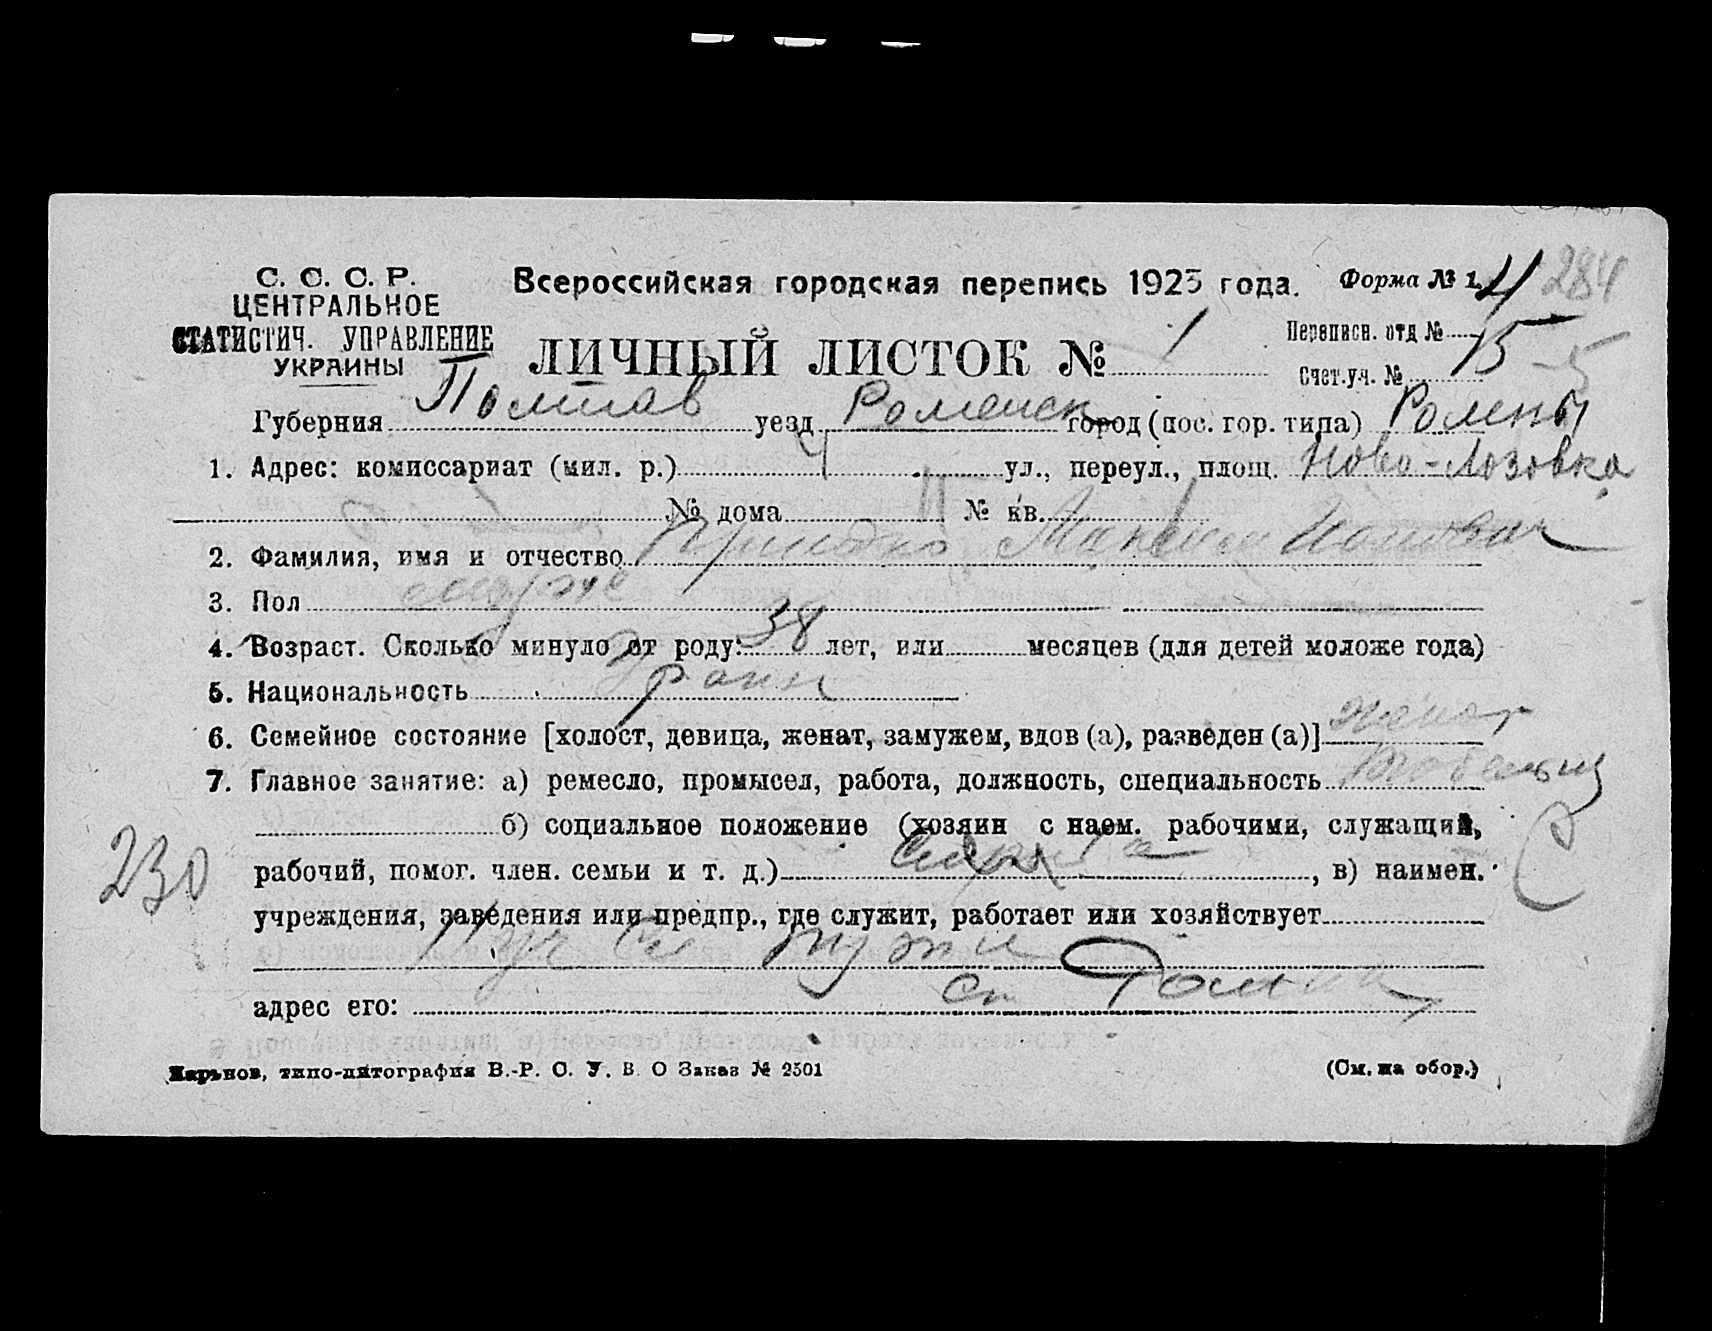 С. С. С. Р.
ЦЕНТРАЛЬНОЕ
СТАТИСТИЧ. УПРАВЛЕНИЕ
УКРАИНЫ
Всероссийская городская перепись 1923 года.
Форма № 1. 4 284
ЛИЧНЫЙ ЛИСТОК № 1
Переписн. отд №
Счет. уч. № 15
Губерния Полтав уезд Роменск город (пос. гор. типа) Ромны
1. Адрес: комиссариат (мил. р.) 4 ул., переул., площ. Ново-Лозовка
№ дома № кв.
2. Фамилия, имя и отчество Максим
3. Пол муж
4. Возраст. Сколько минуло от роду: 38 лет, или месяцев (для детей моложе года)
5. Национальность
6. Семейное состояние [холост, девица, женат, замужем, вдов (а), разведен (а)] женат
7. Главное занятие: а) ремесло, промысел, работа, должность, специальность
б) социальное положение (хозяин с наем. рабочими, служащий,
230
рабочий, помог. член. семьи и т. д.) , в) наимен.
учреждения, заведения или предпр., где служит, работает или хозяйствует
адрес его: ст Ромны
Харьков, типо-литография В.-Р. С. У. В. О Заказ № 2501
(См. на обор.)